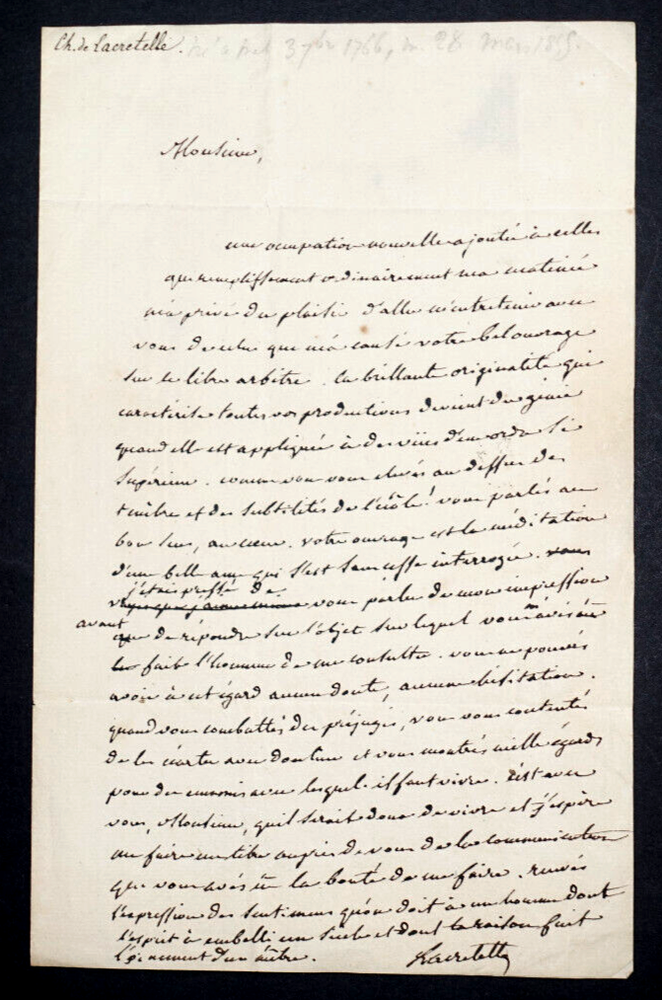 Ch. de Lacretelle. né à 3 7bre 1766, m. 28 mars 1855.
Monsieur,
une occupation nouvelle ajoutée à celles
qui remplissent ordinairement ma matinée
m'a privé du plaisir d'aller m'entretenir avec
vous de celui que m'a causé votre bel ouvrage
sur le libre arbitre. la brillante originalité qui
caractérise toutes vos productions devient du génie
quand elle est appliquée à des vües d'un ordre si
supérieur. comme vous vous elevés au dessus des
et des subtilités de l'école! vous parlés au
bon sens, au cœur. votre ouvrage est la méditation
d'une belle ame qui s'est sans cesse interrogée.
j'étais pressé de
vous parler de mon impression
avant
de répondre sur l'objet sur lequel vous m'avés
fait l'honneur de me consulter. vous ne pouvés
avoir à cet égard aucun doute, aucune hésitation.
quand vous combattés des préjugés, vous vous contentés
de les écarter avec douceur et vous montrés mille égards
pour des ennemis avec lesquels il faut vivre. c'est avec
vous, Monsieur, qu'il serait doux de vivre et j'espère
me faire un titre auprès de vous de la communication
que vous avés eu la bonté de me faire. recevés
l'expression des sentimens qu'on doit à un homme dont
l'esprit a embelli un siècle et dont la raison fait
l'ornement d'un autre.
Lacretelle